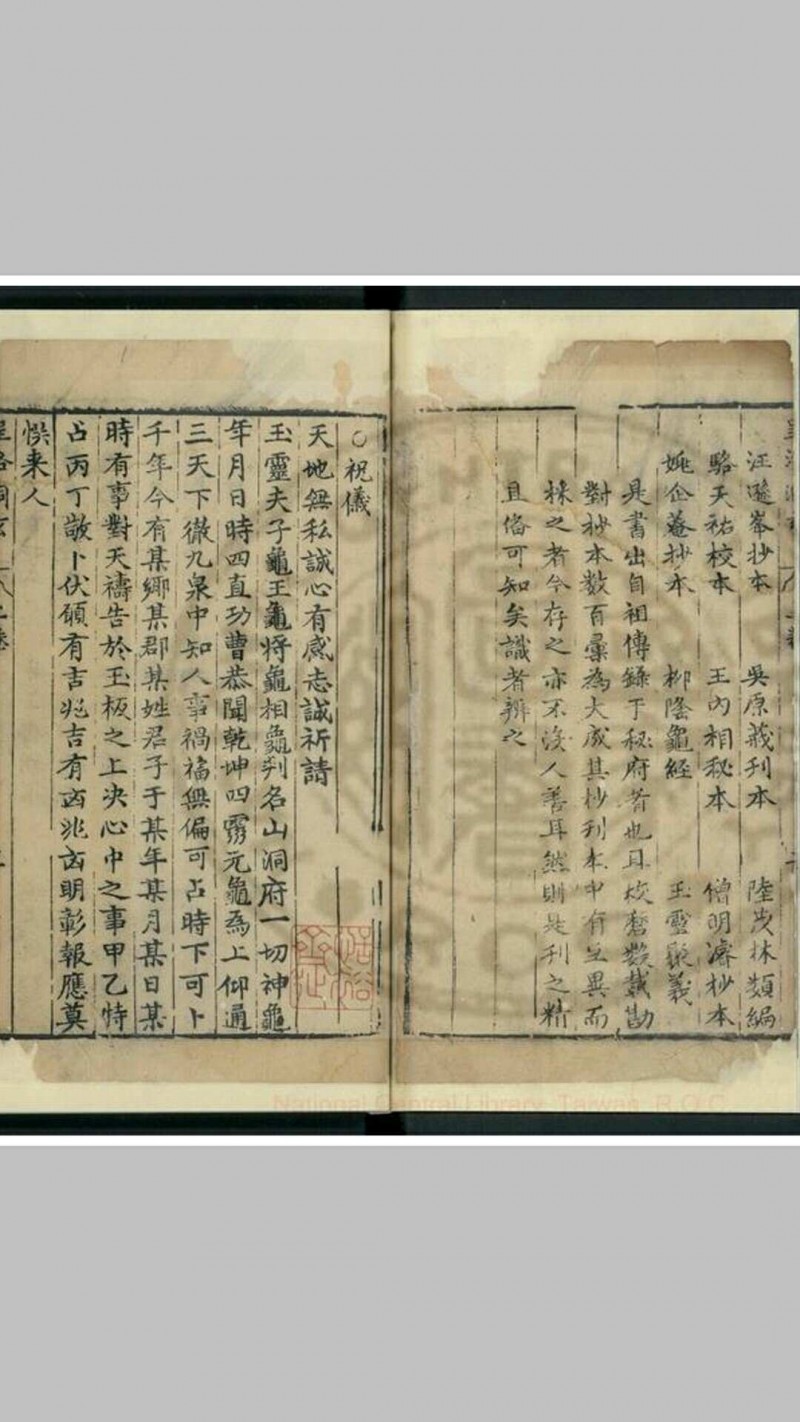 汪 峯抄本 吳原義刋本 陸茂林類編
駱天祐校本 王內相秘本 僧明濬抄本
姚企菴抄本 柳隂龜經 玉靈聚義
是書出自祖傳錄于秘府者也且 勘
對抄本數百彙為大成其抄刋本中有 異而
採之者今存之亦不沒人善耳然則是刋之精
且俻可知矣識者辨之
○祝儀
天地無私誠心有感志誠祈請
玉靈夫子龜王龜將龜相龜判名山洞府一切神龜
年月日時四直功曹恭聞乾坤四霛元龜為上仰通
三天下徹九泉中知人事禍福無偏可占時下可卜
千年今有某鄉某郡某姓君子于某年某月某日某
時有事對天禱告於玉板之上决心中之事甲乙特
占丙丁敬卜伏願有吉兆吉有凶兆凶明彰報應莫
悞来人
National Central Library, Taiwan, R.O.C